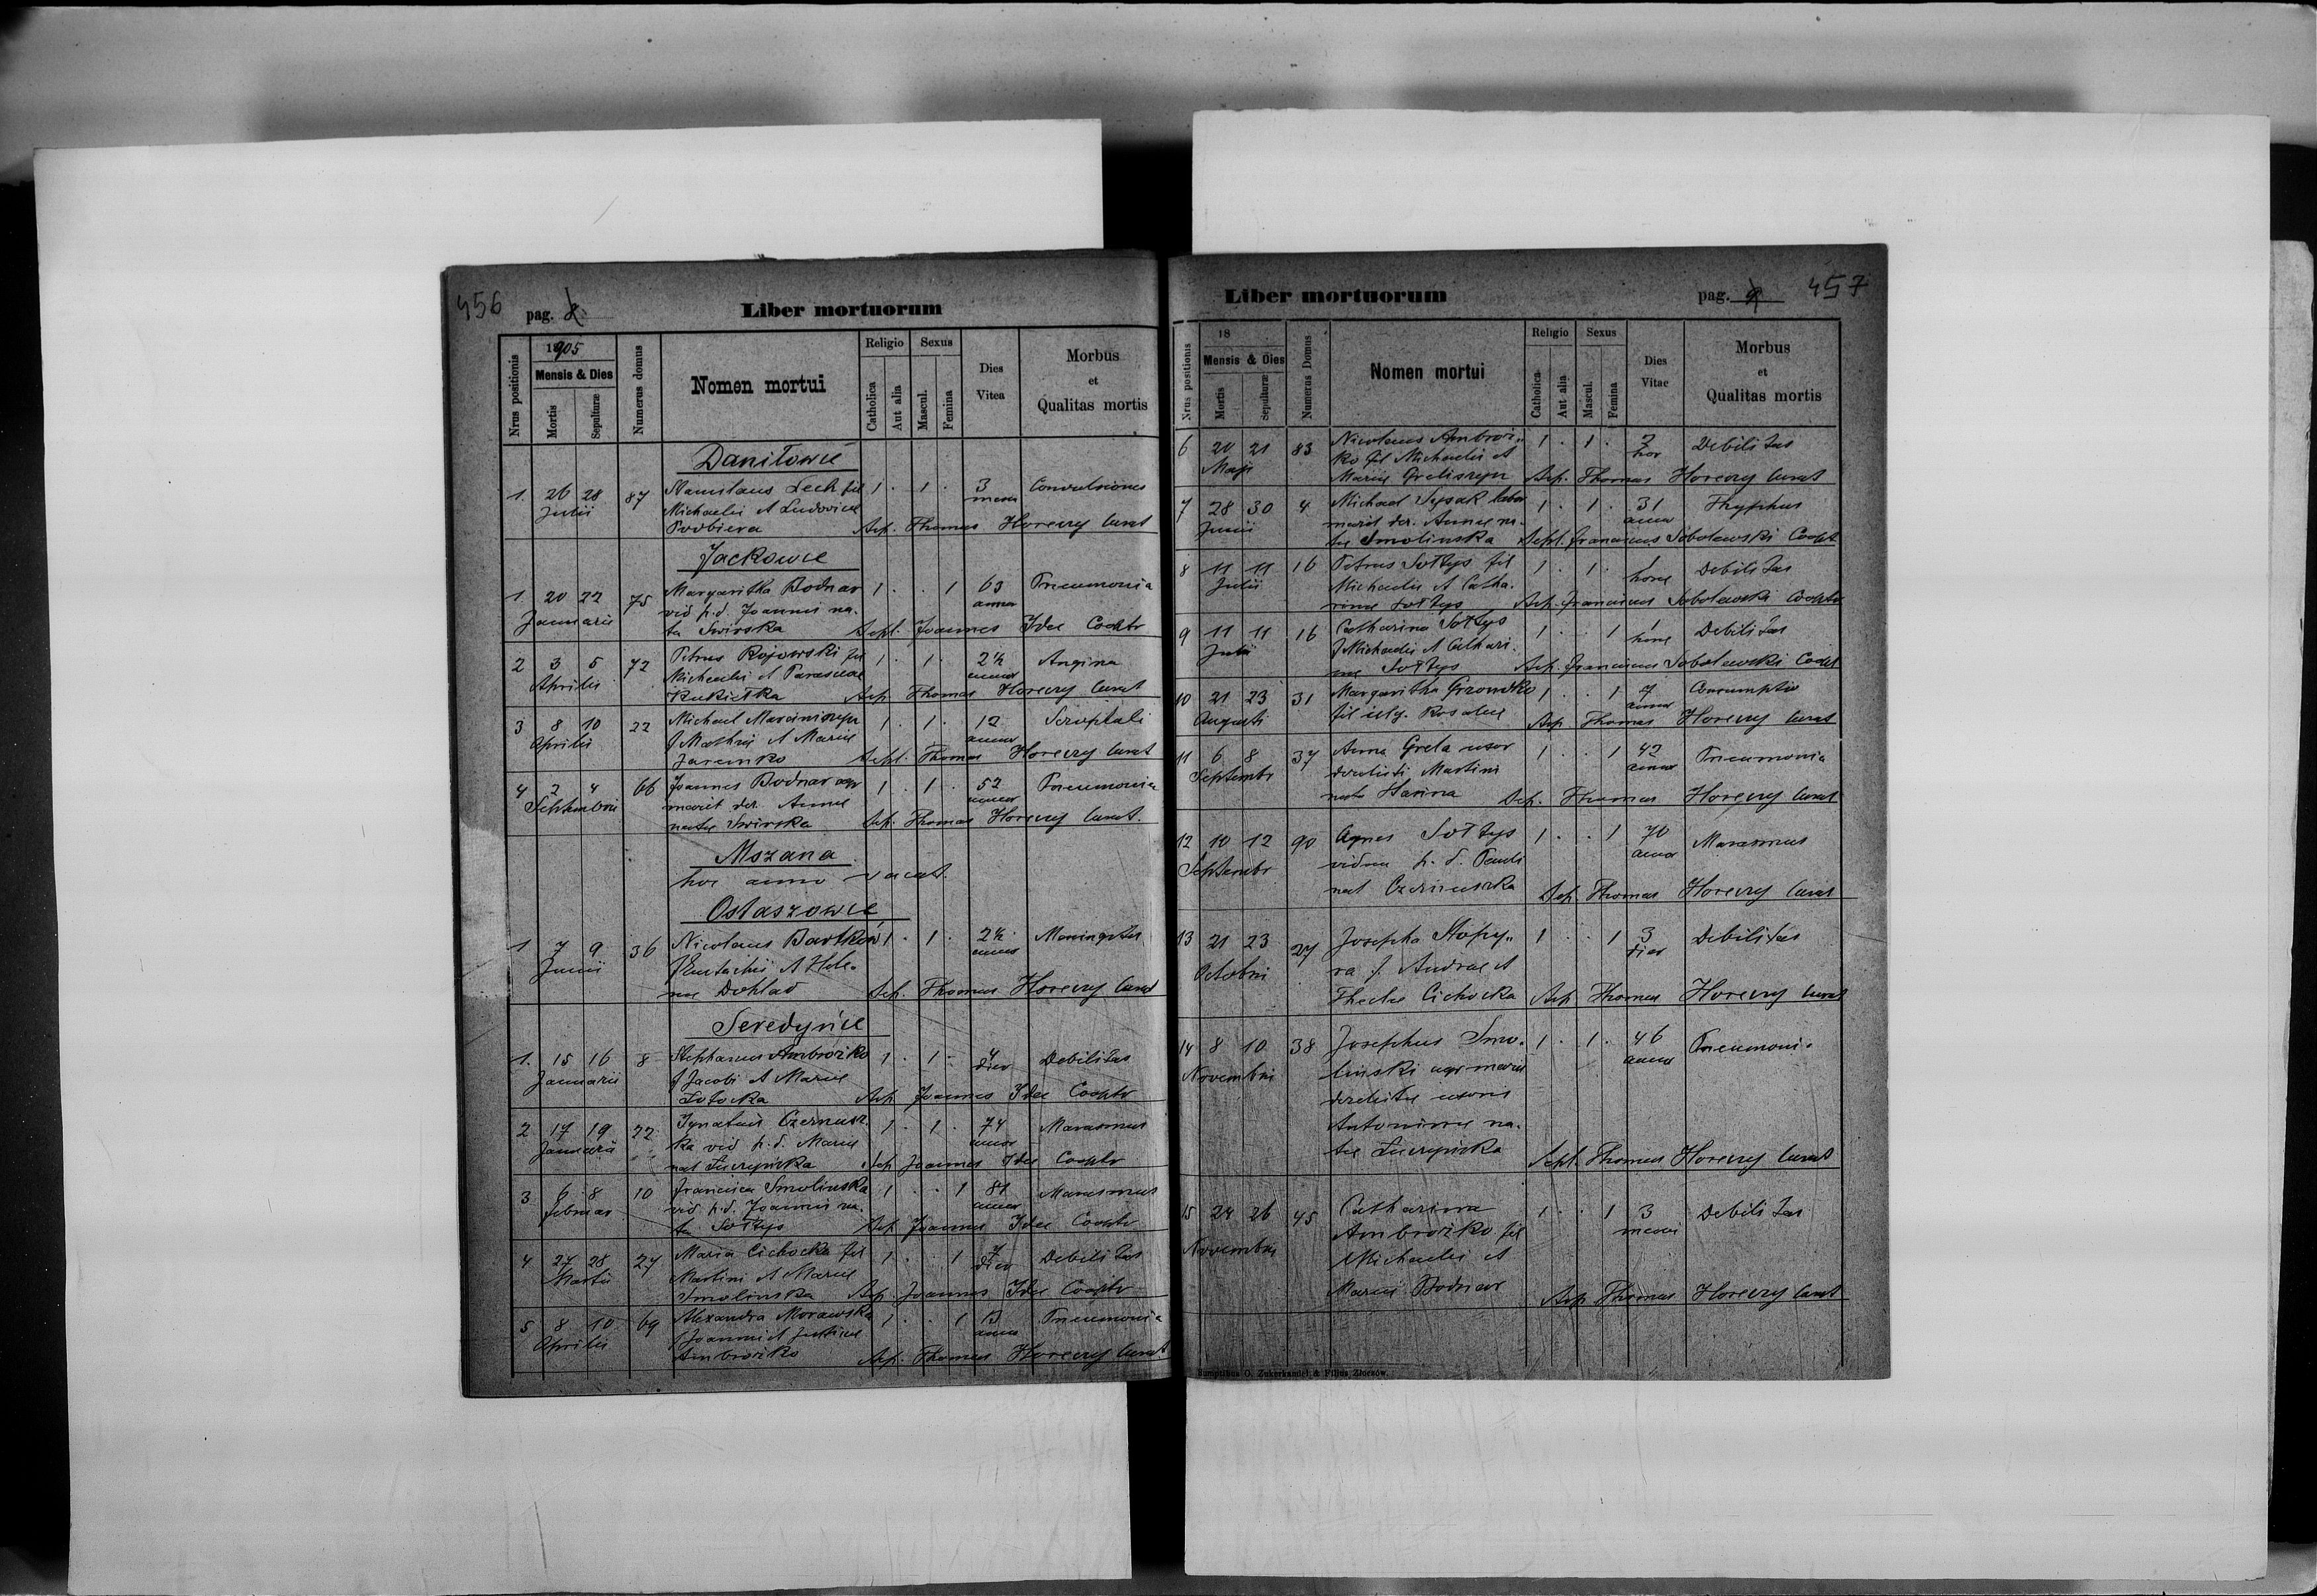 456 pag. 
Liber mortuorum
Nrus positionis
1905
Mensis & Dies
Mortis
Sepulturæ
Numerus domus
Nomen mortui
Religio
Catholica
Aut alia
Sexus
Mascul.
Femina
Dies
Vitea
Morbus
et
Qualitas mortis
Daniłowce
1. 26 28 87 Stanislaus Lech fil 1 . 1 . 3 Convulsiones
Julii Michaelis et Ludovicae menses
Sep. Thomas Horeczy Curat
Jackowce
1. 20 22 75 Margaritha Bodnar 1 . . 1 63 Pneumonia
Januarii vid p.d. Joannis na- annor
ta Swirska Sepl. Joannes Idec Cooptr
2 3 5 72 Petrus Rojowski fil 1 . 1 . 2½ Angina
Aprilis Michaelis et Parascae annor
Kukiełka Sep. Thomas Horeczy Curat
3 8 10 22 Michael Marciniszyn 1 . 1 . 12
Aprilis f Mathiae et Mariae annor
Jaremko Sepl. Thomas Horeczy Curat
4 2 4 66 Joannes Bodnar agr 1 . 1 . 52 Pneumonia
Septembris marit der. Annae annor
natae Swirska Sep. Thomas Horeczy Curat.
Mszana
hoc anno vacat.
Ostaszowce
1 7 9 36 Nicolaus Bartków 1 . 1 . 2½
Junii f Eustachii et Hele- annor
nae Dohlad Sep. Thomas Horeczy Curat
Seredyńce
1. 15 16 8 Stephanus Ambrożko 1 . 1 . 4 Debilitas
Januarii f Jacobi et Mariae dier
Sep Joannes Idec Cooptr
2 17 19 22 Ignatius Czernusz- 1 . 1 . 74 Marasmus
Januarii ka vid p.d. Mariae annor
nat Łuczyńska Sep Joannes Idec Cooptr
3 6 8 10 Francisca Smolinska 1 . . 1 81 Marasmus
Februar vid p.d. Joannis na- annor
ta Sołtys Sep Joannes Idec Cooptr
4 27 28 27 Maria Cichocka fil 1 . . 1 7 Debilitas
Martii Martini et Mariae dier
Smolinska Sep. Joannes Idec Cooptr
5 8 10 69 Alexandra Morawska 1 . . 1 13 Pneumonia
Aprilis f Joannis et Justinae annor
Ambrożko Sep. Thomas Horeczy Curat
Liber mortuorum
pag. 457
Nrus positionis
18
Mensis & Dies
Mortis
Sepulturæ
Numerus Domus
Nomen mortui
Religio
Catholica
Aut alia
Sexus
Mascul.
Femina
Dies
Vitae
Morbus
et
Qualitas mortis
6 20 21 83 Nicolaus Ambroż- 1 . 1 . 2 Debilitas
Maji ko fil Michaelis et hor
Mariae Greliszyn Sep. Thomas Horeczy Curat
7 28 30 4 Michael Sysak labor 1 . 1 . 31 Thyphus
Junii marit der. Annae na- annor
tae Smolinska Sepl. Franciscus Sobolewski Coopt
8 11 11 16 Petrus Sołtys fil 1 . 1 . 1 Debilitas
Julii Michaelis et Catha- hora
rinae Sołtys Sep. Franciscus Sobolewski Cooptr
9 11 11 16 Catharina Sołtys 1 . . 1 1 Debilitas
Julii f Michaelis et Cathari- hora
nae Sołtys Sep. Franciscus Sobolewski Coopt
10 21 23 31 Margaritha Gromdko 1 . . 1 7 Consumptio
Augusti fil illg. Rosaliae annor
Sep Thomas Horeczy Curat
11 6 8 37 Anna Greta uxor 1 . . 1 42 Pneumonia
Septembr derelicti Martini annor
nata Hanina Sep. Thomas Horeczy Curat
12 10 12 90 Agnes Sołtys 1 . . 1 70 Marasmus
Septembr vidua p. d. Pauli annor
nat Czernuszka Sep. Thomas Horeczy Curat
13 21 23 27 Josepha Stopy- 1 . . 1 3 Debilitas
Octobris ra f. Andreae et dier
Theclae Cichocka Sep Thomas Horeczy Curat
14 8 10 38 Josephus Smo- 1 . 1 . 46 Pneumoni-
Novembris linski agr marit annor
derelictae uxoris
Antoninae na-
tae Łuczyńska Sepl. Thomas Horeczy Curat
15 24 26 45 Catharina 1 . . 1 3 Debilitas
Novembris Ambrożko fil menses
Michaelis et
Mariae Bodnar Sep Thomas Horeczy Curat
Sumptibus O. Zukerkandel & Filius Złoczów.